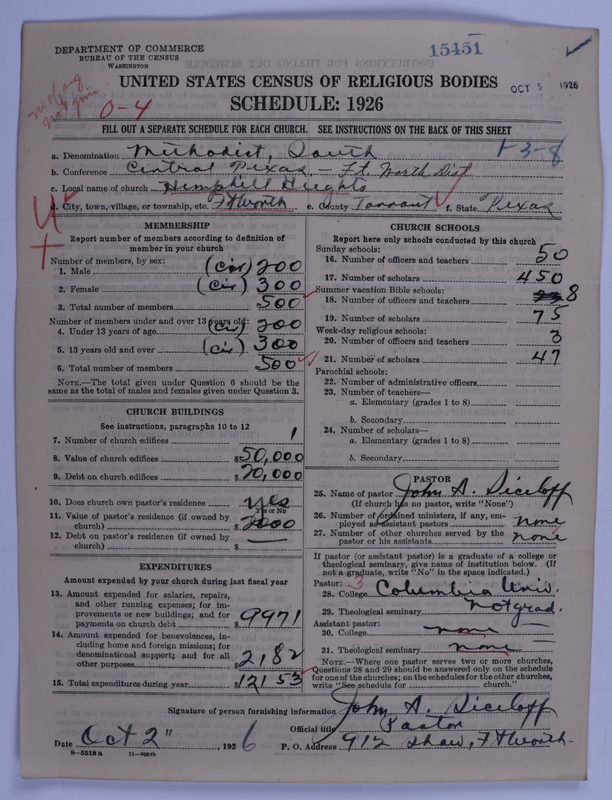 DEPARTMENT OF COMMERCE
BUREAU OF THE CENSUS
WASHINGTON
15451
UNITED STATES CENSUS OF RELIGIOUS BODIES
OCT 5 1926
SCHEDULE: 1926
0-4
FILL OUT A SEPARATE SCHEDULE FOR EACH CHURCH. SEE INSTRUCTIONS ON THE BACK OF THIS SHEET
a. Denomination Methodist, South
b. Conference Central Texas - Ft. Worth Dist
c. Local name of church Hemphill Heights
d. City, town, village, or township, etc. Ft Worth e. County Tarrant f. State Texas
MEMBERSHIP
Report number of members according to definition of
member in your church
Number of members, by sex:
1. Male (Cir) 200
2. Female (Cir) 300
3. Total number of members 500
Number of members under and over 13 years old:
4. Under 13 years of age (Cir) 200
5. 13 years old and over (Cir) 300
6. Total number of members 500
NOTE.—The total given under Question 6 should be the
same as the total of males and females given under Question 3.
CHURCH BUILDINGS
See instructions, paragraphs 10 to 12
7. Number of church edifices 1
8. Value of church edifices $50,000
9. Debt on church edifices $20,000
10. Does church own pastor's residence yes
Yes or No
11. Value of pastor's residence (if owned by
church) $2000
12. Debt on pastor's residence (if owned by
church) $ —
EXPENDITURES
Amount expended by your church during last fiscal year
13. Amount expended for salaries, repairs,
and other running expenses; for im-
provements or new buildings; and for
payments on church debt $9971
14. Amount expended for benevolences, in-
cluding home and foreign missions; for
denominational support; and for all
other purposes $2,182
15. Total expenditures during year $12153
CHURCH SCHOOLS
Report here only schools conducted by this church
Sunday schools:
16. Number of officers and teachers 50
17. Number of scholars 450
Summer vacation Bible schools:
18. Number of officers and teachers 8
19. Number of scholars 75
Week-day religious schools:
20. Number of officers and teachers 3
21. Number of scholars 47
Parochial schools:
22. Number of administrative officers
23. Number of teachers—
a. Elementary (grades 1 to 8)
b. Secondary
24. Number of scholars—
a. Elementary (grades 1 to 8)
b. Secondary
PASTOR
25. Name of pastor John A. Siceloff
(If church has no pastor, write "None")
26. Number of ordained ministers, if any, em-
ployed as assistant pastors none
27. Number of other churches served by the
pastor or his assistants none
If pastor (or assistant pastor) is a graduate of a college or
theological seminary, give name of institution below. (If
not a graduate, write "No" in the space indicated.)
Pastor: 3
28. College Columbia Univ.
29. Theological seminary Not grad.
Assistant pastor:
30. College none —
31. Theological seminary none —
NOTE.—Where one pastor serves two or more churches,
Questions 28 and 29 should be answered only on the schedule
for one of the churches; on the schedules for the other churches,
write "See schedule for church."
Signature of person furnishing information John A. Siceloff
Official title Pastor
Date Oct 2", 1926 P. O. Address 912 Shaw, Ft Worth
8-5518a